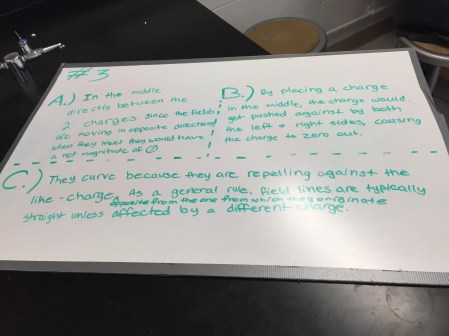 #3
A.) In the middle
directly between the
2 charges. Since the fields
are moving in opposite directions
when they meet they would have
a net magnitude of 0.
B.) By placing a charge
in the middle, the charge would
get pushed against by both
the left + right sides, causing
the charge to zero out.
C.) They curve because they are repelling against the
like-charge. As a general rule, field lines are typically
opposite from the one from which they originate
straight unless affected by a different charge.